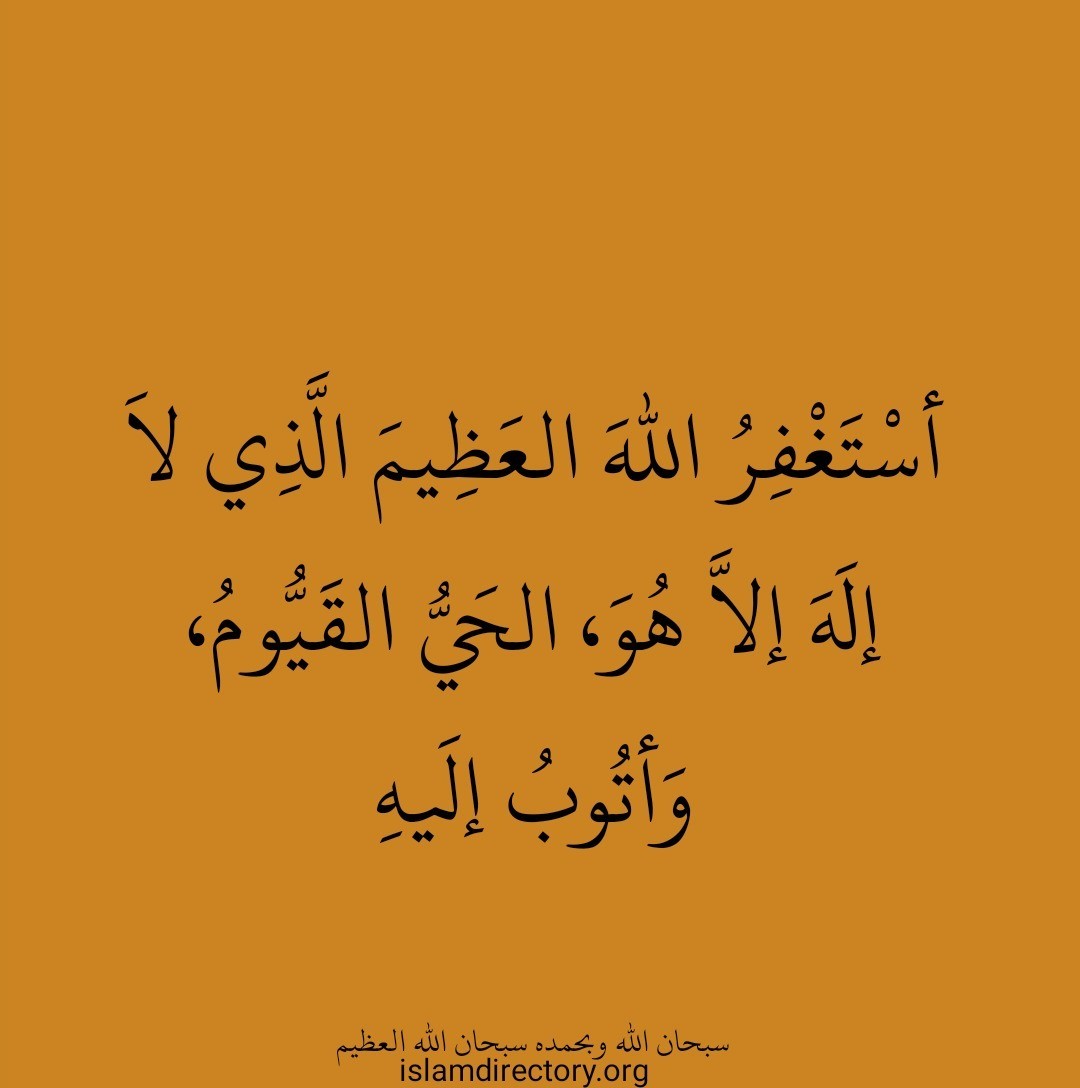 أسْتَغْفِرُ اللهَ العَظِيمَ الَّذِي لاَ
إلَهَ إلاَّ هُوَ، الحَيُّ القَيُّومُ،
وَأتُوبُ إلَيهِ
سبحان الله وبحمده سبحان الله العظيم
islamdirectory.org